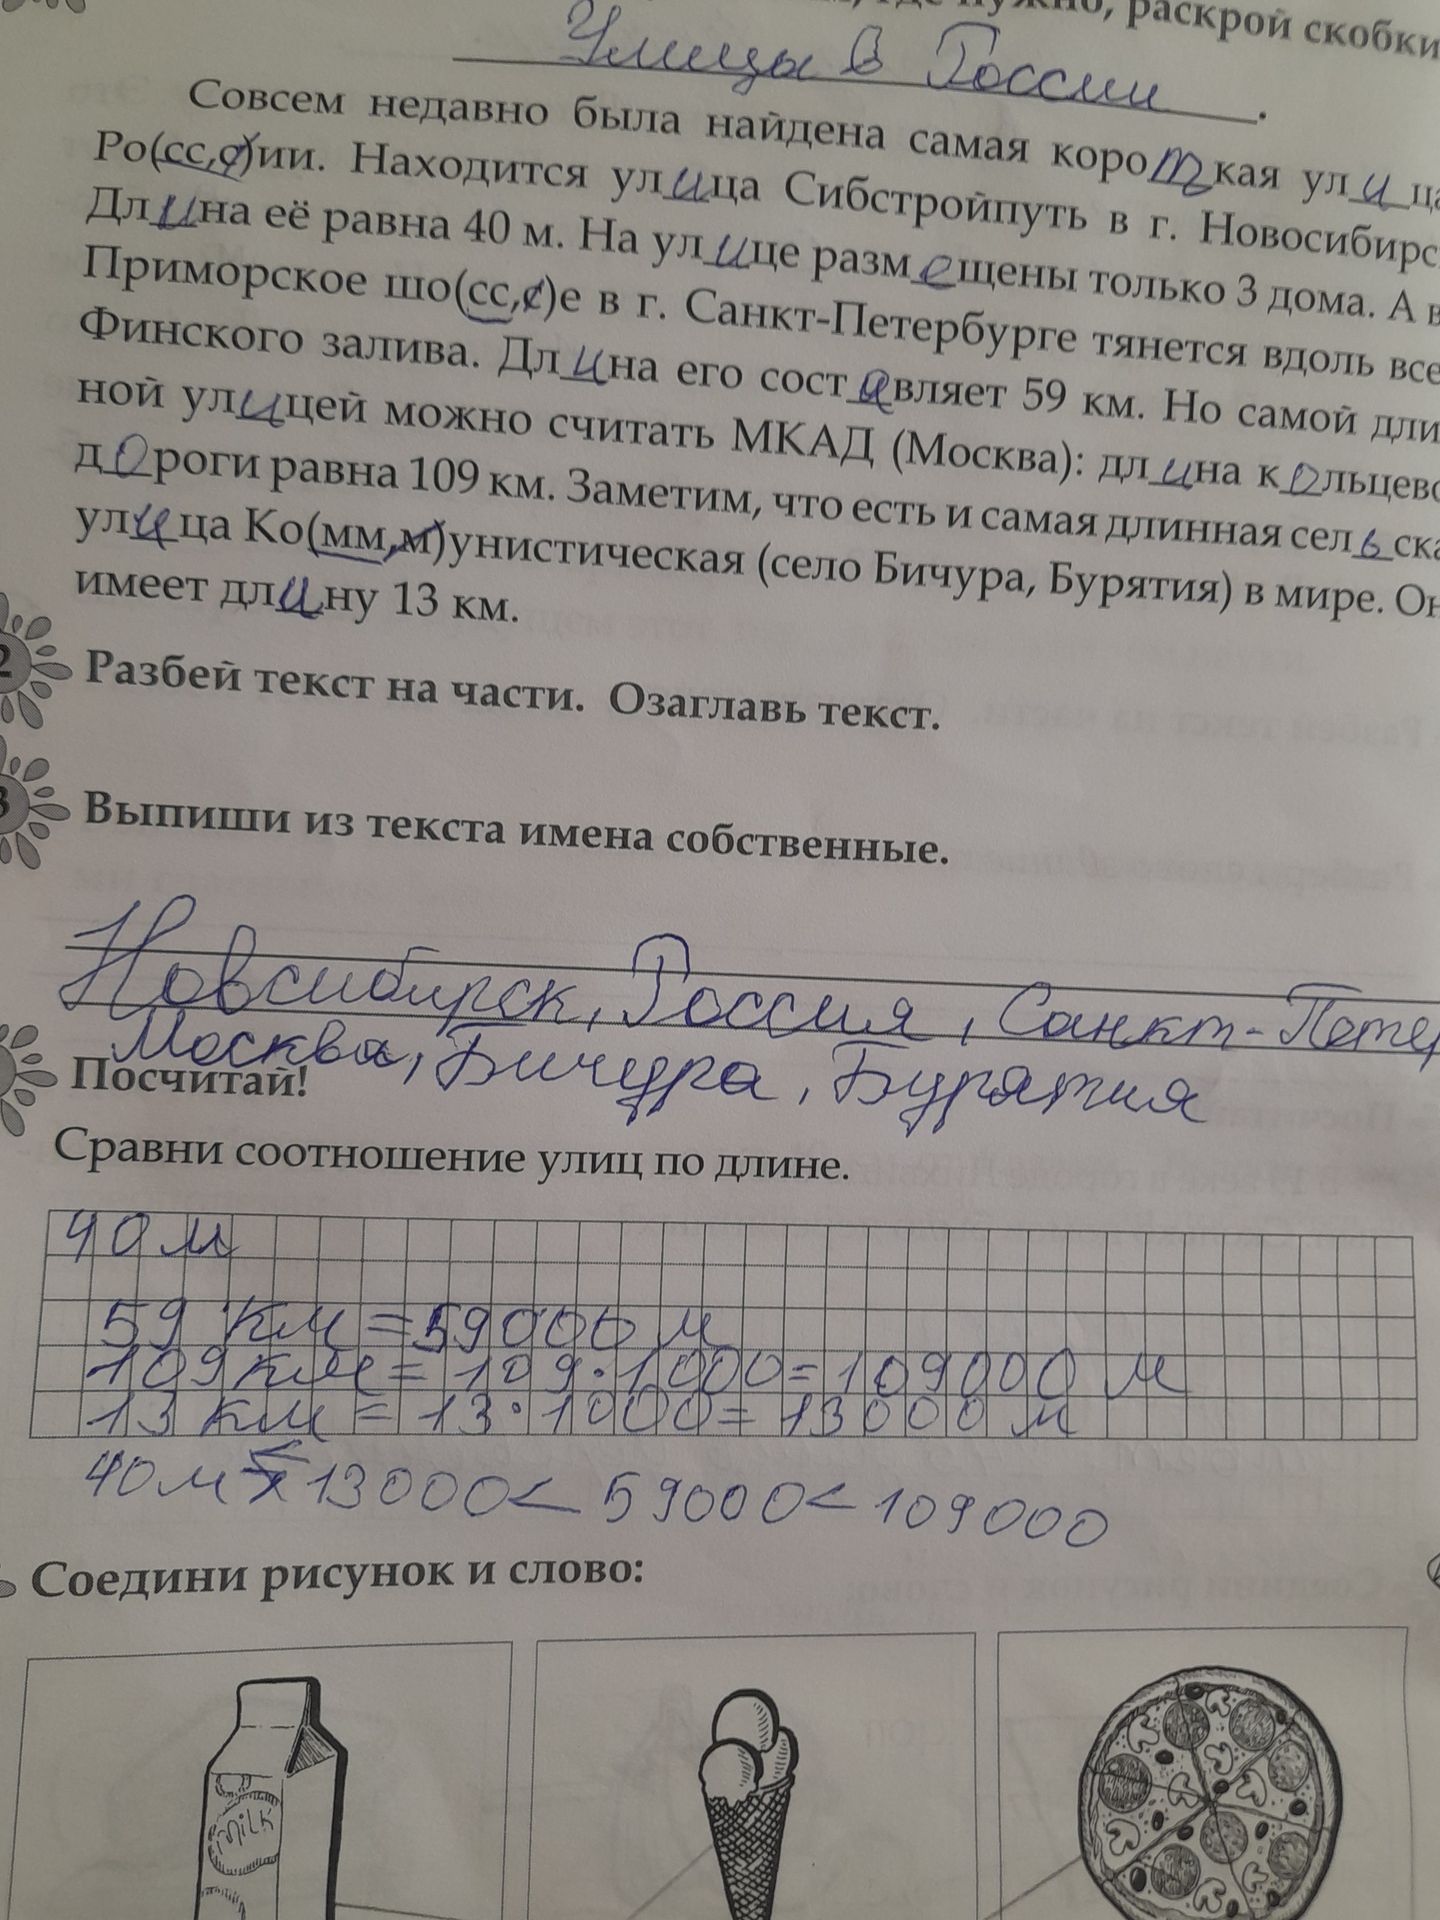 где нужно, раскрой скобки
Улицы в России.
Совсем недавно была найдена самая короткая улица
Ро(сс,с)ии. Находится улица Сибстройпуть в г. Новосибирс
Длина её равна 40 м. На улице размещены только 3 дома. А в
Приморское шо(сс,с)е в г. Санкт-Петербурге тянется вдоль все
Финского залива. Длина его составляет 59 км. Но самой дли
ной улицей можно считать МКАД (Москва): длина кольцево
дороги равна 109 км. Заметим, что есть и самая длинная сельска
улица Ко(мм,м)унистическая (село Бичура, Бурятия) в мире. Он
имеет длину 13 км.
2 Разбей текст на части. Озаглавь текст.
3 Выпиши из текста имена собственные.
Новсибирск, Россия, Санкт-Петер
Москва, Бичура, Бурятия
Посчитай!
Сравни соотношение улиц по длине.
40 м
59 км = 59000 м
109 км = 109·1000 = 109000 м
13 км = 13·1000 = 13000 м
40 м < 13000 < 59000 < 109000
Соедини рисунок и слово:
milk